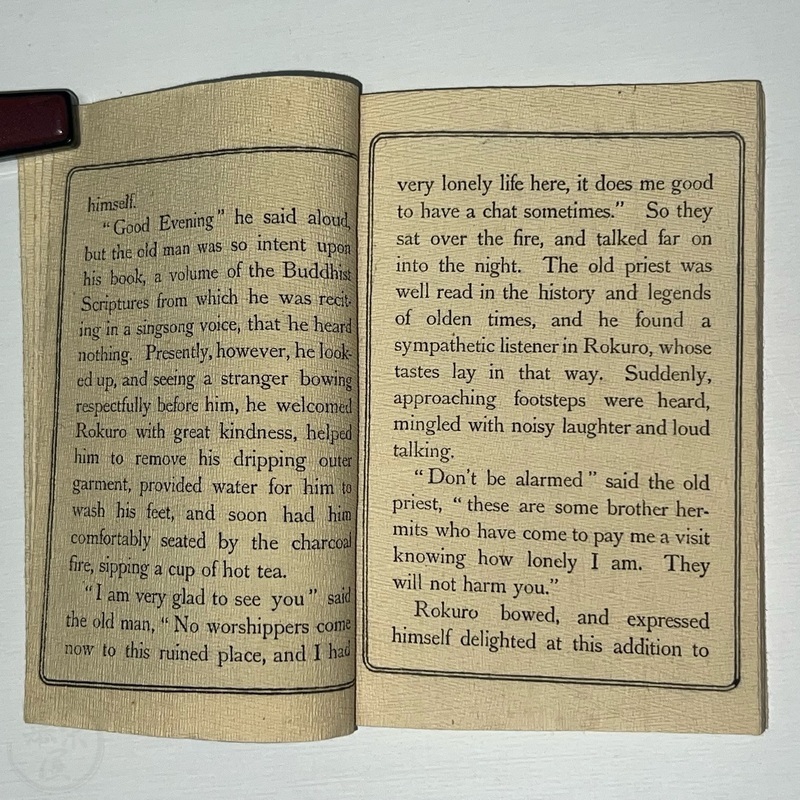 himself.
"Good Evening" he said aloud,
but the old man was so intent upon
his book, a volume of the Buddhist
Scriptures from which he was recit-
ing in a singsong voice, that he heard
nothing. Presently, however, he look-
ed up, and seeing a stranger bowing
respectfully before him, he welcomed
Rokuro with great kindness, helped
him to remove his dripping outer
garment, provided water for him to
wash his feet, and soon had him
comfortably seated by the charcoal
fire, sipping a cup of hot tea.
"I am very glad to see you" said
the old man, "No worshippers come
now to this ruined place, and I had
very lonely life here, it does me good
to have a chat sometimes." So they
sat over the fire, and talked far on
into the night. The old priest was
well read in the history and legends
of olden times, and he found a
sympathetic listener in Rokuro, whose
tastes lay in that way. Suddenly,
approaching footsteps were heard,
mingled with noisy laughter and loud
talking.
"Don't be alarmed" said the old
priest, "these are some brother her-
mits who have come to pay me a visit
knowing how lonely I am. They
will not harm you."
Rokuro bowed, and expressed
himself delighted at this addition to